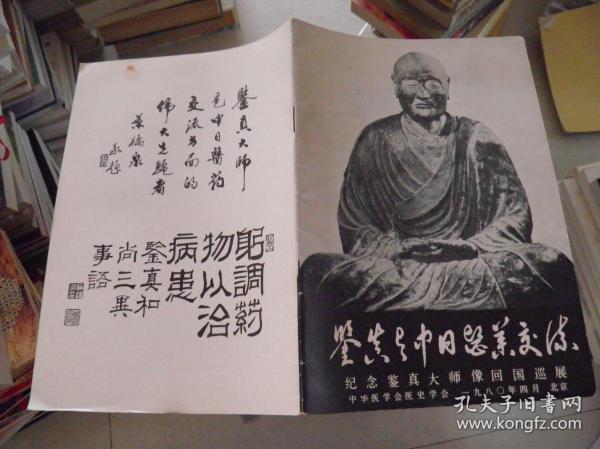 鑒真大师
是中日醫药
交流方面的
偉大先驅者
葉橘泉
躬調药
物以治
病患
鑒真和
尚三異
事語
鑒真与中日醫药交流
纪念鉴真大师像回国巡展
中华医学会医史学会 一九八〇年四月 北京
孔夫子旧书网
www.kongfz.com